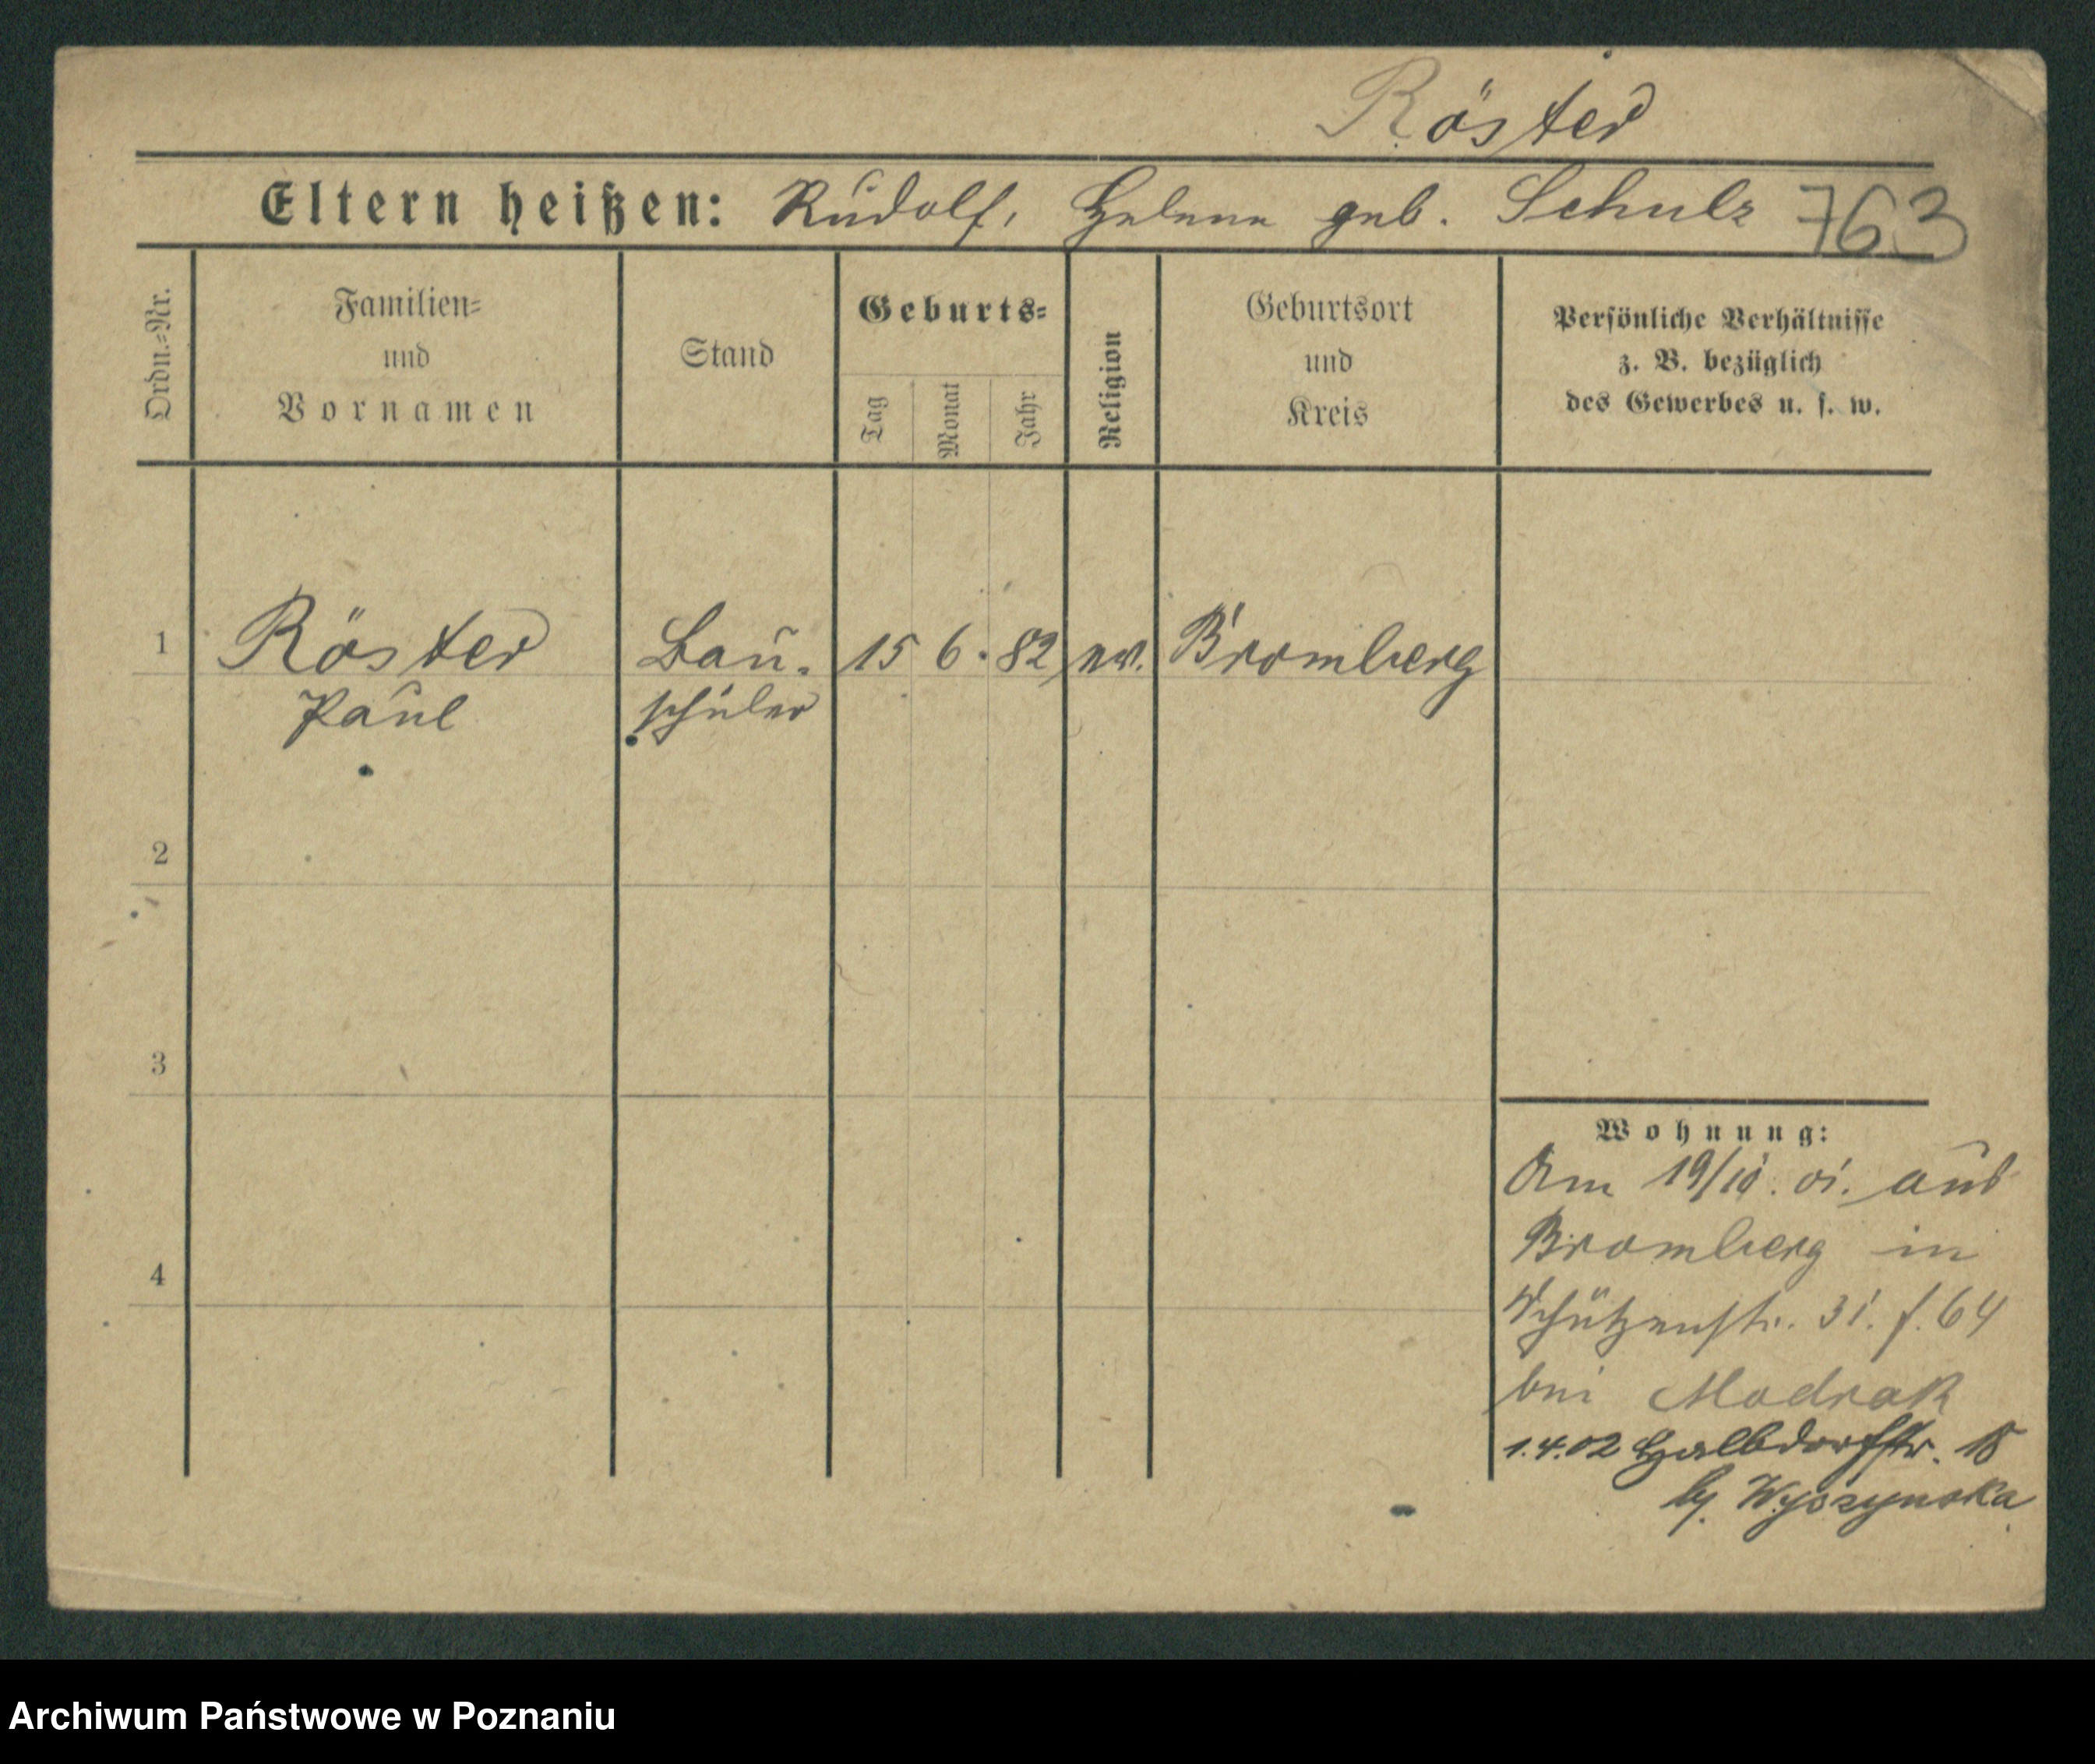 Röster
Eltern heißen: Rudolf, Helene geb. Schulz 763
Ordn.-Nr.
Familien-
und
Vornamen
Stand
Geburts-
Tag
Monat
Jahr
Religion
Geburtsort
und
Kreis
Persönliche Verhältnisse
z. B. bezüglich
des Gewerbes u. s. w.
1 Röster Bau- 15 6. 82 ev. Bromberg
Paul schüler
2
3
4
Wohnung:
Am 19/10. 01. aus
Bromberg in
Schützenstr. 31. f. 64
bei Modrak
1.4.02 Halbdorfstr. 18
by. Wyszynska
Archiwum Państwowe w Poznaniu